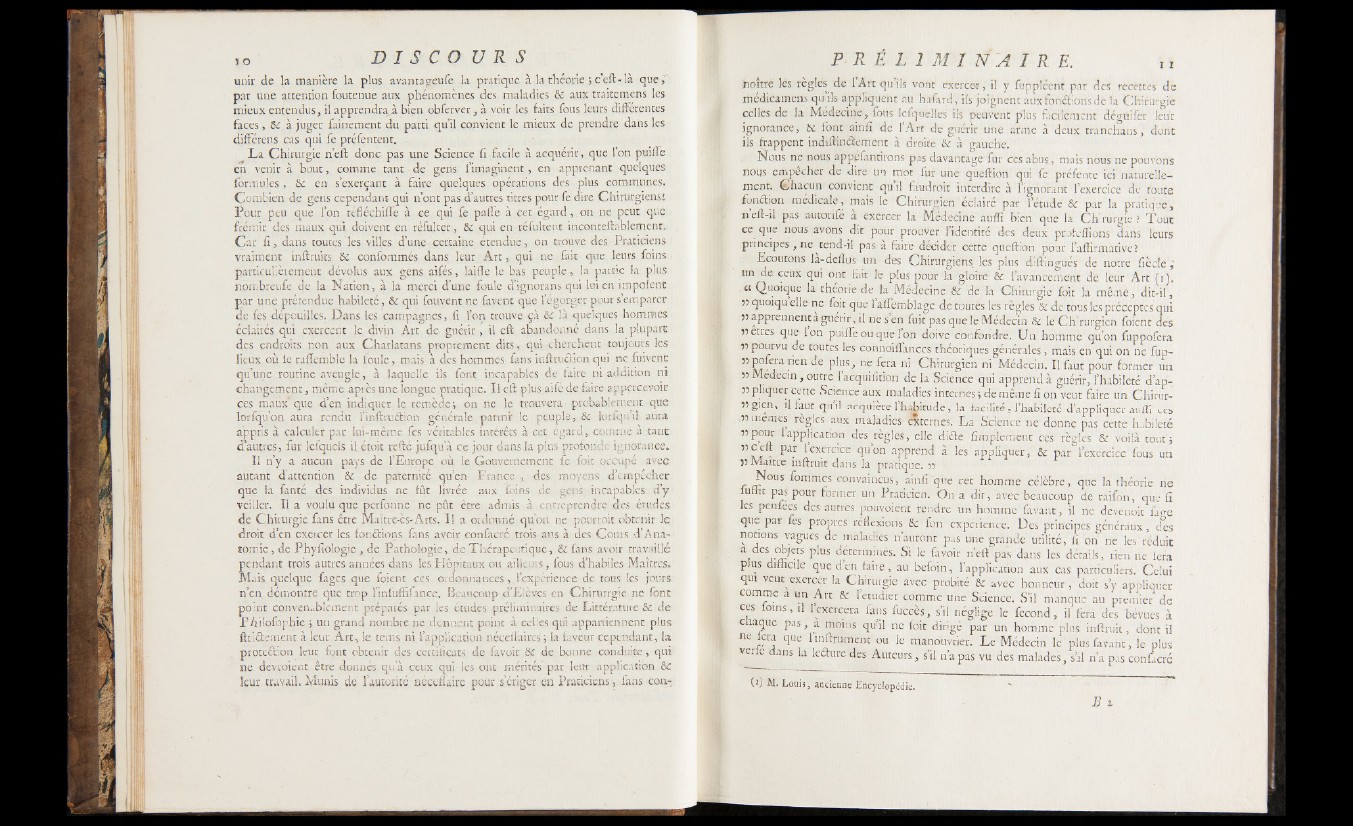 10 DISCOURS
unir de la manière la plus avantageuſe la pratique à la théorie ; c'eſt-là que,
par une attention ſoutenue aux phénomènes des maladies & aux traitemens les
mieux entendus, il apprendra à bien obſerver, à voir les faits ſous leurs différentes
faces, & à juger ſainement du parti qu'il convient le mieux de prendre dans les
différens cas qui ſe préſentent.
La Chirurgie n'eſt donc pas une Science ſi facile à acquérir, que l'on puiſſe
en venir à bout, comme tant de gens l'imaginent, en apprenant quelques
formules, & en s'exerçant à faire quelques opérations des plus communes.
Combien de gens cependant qui n'ont pas d'autres titres pour ſe dire Chirurgiens!
Pour peu que l'on réfléchiſſe à ce qui ſe paſſe à cet égard, on ne peut que
frémir des maux qui doivent en réſulter, & qui en réſultent inconteſtablement.
Car ſi, dans toutes les villes d'une certaine étendue, on trouve des Praticiens
vraiment inſtruits & conſommés dans leur Art, qui ne fait que leurs ſoins
particulièrement dévolus aux gens aiſés, laiſſe le bas peuple, la partie la plus
nombreuſe de la Nation, à la merci d'une foule d'ignorans qui lui en impoſent
par une prétendue habileté, & qui ſouvent ne ſavent que l'égorger pour s'emparer
de ſes dépouilles. Dans les campagnes, ſi l'on trouve çà & là quelques hommes
éclairés qui exercent le divin Art de guérir, il eſt abandonné dans la plupart
des endroits non aux Charlatans proprement dits, qui cherchent toujours les
lieux où ſe raſſemble la foule, mais à des hommes ſans inſtruction qui ne ſuivent
qu'une routine aveugle, à laquelle ils ſont incapables de faire ni addition ni
changement, même après une longue pratique. Il eſt plus aiſé de faire appercevoir
ces maux que d'en indiquer le remède; on ne le trouvera probablement que
lorſqu'on aura rendu l'inſtruction générale parmi le peuple, & lorſqu'il aura
appris à calculer par lui-même ſes véritables intérêts à cet égard, comme à tant
d'autres, ſur leſquels il étoit reſté juſqu'à ce jour dans la plus profonde ignorance.
Il n'y a aucun pays de l'Europe où le Gouvernement ſe ſoit occupé avec
autant d'attention & de paternité qu'en France, des moyens d'empêcher
que la ſanté des individus ne fût livrée aux ſoins de gens incapables d'y
veiller. Il a voulu que perſonne ne pût être admis à entreprendre des études
de Chirurgie ſans être Maître-ès-Arts. Il a ordonné qu'on ne pourroit obtenir le
droit d'en exercer les fonctions ſans avoir conſacré trois ans à des Cours d'Ana-
tomie, de Phyſiologie, de Pathologie, de Thérapeutique, & ſans avoir travaillé
pendant trois autres années dans les Hôpitaux ou ailleurs, ſous d'habiles Maîtres.
Mais quelque ſages que ſoient ces ordonnances, l'expérience de tous les jours
n'en démontre que trop l'inſuffiſance. Beaucoup d'Elèves en Chirurgie ne ſont
point convenablement préparés par les études préliminaires de Littérature & de
Philoſophie ; un grand nombre ne donnent point à celles qui appartiennent plus
ſtrictement à leur Art, le tems ni l'application néceſſaires; la faveur cependant, la
protection leur font obtenir des certificats de ſavoir & de bonne conduite, qui
ne devroient être donnés qu'à ceux qui les ont mérités par leur application &
leur travail. Munis de l'autorité néceſſaire pour s'ériger en Praticiens, ſans con-
PRÉLIMINAIRE. 11
noître les règles de l'Art qu'ils vont exercer, il y ſuppléent par des recettes de
médicamens qu'ils appliquent au haſard, ils joignent aux fonctions de la Chirurgie
celles de la Médecine, ſous leſquelles ils peuvent plus facilement déguiſer leur
ignorance, & font ainſi de l'Art de guérir une arme à deux tranchans, dont
ils frappent indiſtinctement à droite & à gauche.
Nous ne nous appéſantirons pas davantage ſur ces abus, mais nous ne pouvons
nous empêcher de dire un mot ſur une queſtion qui ſe préſente ici naturelle-
ment. Chacun convient qu'il faudroit interdire à l'ignorant l'exercice de toute
fonction médicale, mais le Chirurgien éclairé par l'étude & par la pratique,
n'eſt-il pas autoriſé à exercer la Médecine auſſi bien que la Chirurgie? Tout
ce que nous avons dit pour prouver l'identité des deux profeſſions dans leurs
principes, ne tend-il pas à faire décider cette queſtion pour l'affirmative?
Ecoutons là-deſſus un des Chirurgiens les plus diſtingués de notre ſiècle,
un de ceux qui ont fait le plus pour la gloire & l'avancement de leur Art (1).
« Quoique la théorie de la Médecine & de la Chirurgie ſoit la même, dit-il,
» quoiqu'elle ne ſoit que l'aſſemblage de toutes les règles & de tous les préceptes qui
» apprennent à guérir, il ne s'en ſuit pas que le Médecin & le Chirurgien ſoient des
» êtres que l'on puiſſe ou que l'on doive confondre. Un homme qu'on ſuppoſera
» pourvu de toutes les connoiſſances théoriques générales, mais en qui on ne ſup-
» poſera rien de plus, ne ſera ni Chirurgien ni Médecin. Il faut pour former un
» Médecin, outre l'acquiſition de la Science qui apprend à guérir, l'habileté d'ap-
» pliquer cette Science aux maladies internes; de même ſi on veut faire un Chirur-
» gien, il faut qu'il acquière l'habitude, la facilité, l'habileté d'appliquer auſſi ces
» mêmes règles aux maladies externes. La Science ne donne pas cette habileté
» pour l'application des règles, elle dicte ſimplement ces règles & voilà tout ;
» c'eſt par l'exercice qu'on apprend à les appliquer, & par l'exercice ſous un
» Maître inſtruit dans la pratique. »
Nous ſommes convaincus, ainſi que cet homme célèbre, que la théorie ne
ſuffit pas pour former un Praticien. On a dit, avec beaucoup de raiſon, que ſi
les penſées des autres pouvoient rendre un homme ſavant, il ne devenoit ſage
que par ſes propres réflexions & ſon expérience. Des principes généraux, des
notions vagues de maladies n'auront pas une grande utilité, ſi on ne les réduit
à des objets plus déterminés. Si le ſavoir n'eſt pas dans les détails, rien ne ſera
plus difficile que d'en faire, au beſoin, l'application aux cas particuliers. Celui
qui veut exercer la Chirurgie avec probité & avec honneur, doit s'y appliquer
comme à un Art & l'étudier comme une Science. S'il manque au premier de
ces ſoins, il l'exercera ſans ſuccès, s'il néglige le ſecond, il fera des bévues à
chaque pas, à moins qu'il ne ſoit dirigé par un homme plus inſtruit, dont il
ne ſera que l'inſtrument ou le manouvrier. Le Médecin le plus ſavant, le plus
verſé dans la lecture des Auteurs, s'il n'a pas vu des malades, s'il n'a pas conſacré
(1) M. Louis, ancienne Encyclopédie.
B 2